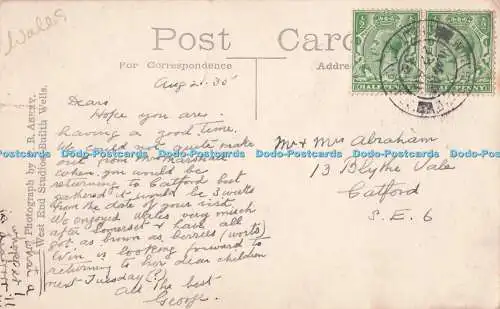 Wales
Post Card
For Correspondence
Address
HALF PENNY
HALF PENNY
Aug 21. 35
Dears
Hope you are
having a good time.
We could not quite make
out from Mr Marshall
when you would be
returning to Catford but
gathered it would be 3 weeks
from the date of your visit.
We enjoyed Wales very much
after Somerset & have all
got as brown as berries (worts)
Win is looking forward to
returning to her dear children
next Tuesday (?)
All the best
George
Mr & Mrs Abraham
13 Blythe Vale
Catford
S. E. 6
Photograph by R. Askey.
West End Studio, Builth Wells.
what a
whopper!
Postcards Postcards Postcards Postcards Postcards Postcards
www.delcampe.net